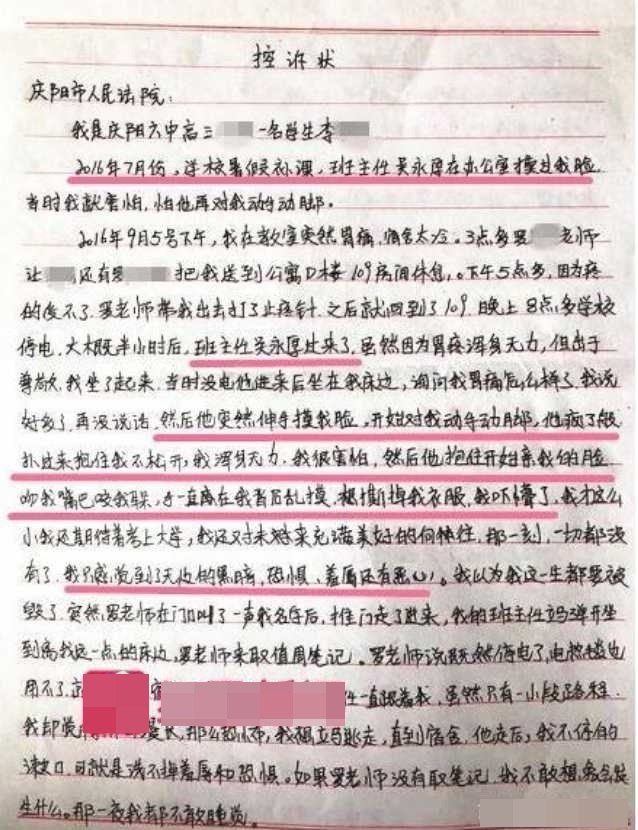 控诉状
庆阳市人民法院:
我是庆阳六中高三 一名学生李
2016年7月份,学校暑假补课,班主任吴永厚在办公室摸过我脸
当时我就害怕.怕他再对我动手动脚。
2016年9月5号下午,我在教室突然胃痛,宿舍太冷。3点多罗 老师
让 还有罗 把我送到公寓D楼109房间休息。下午5点多,因为疼
的受不了.罗老师带我出去打了止疼针.之后就回到了109.晚上8点多学校
停电,大概半小时后,班主任吴永厚进来了.虽然因为胃疼浑身无力,但出于
尊敬,我坐了起来.当时没电他进来后坐在我床边,询问我胃痛怎么样了.我说
好多了.再没说话.然后他突然伸手摸我脸,开始对我动手动脚,他疯了般
扑过来抱住我不松开,我浑身无力.我很害怕,然后他抱住开始亲我的脸
吻我嘴巴咬我耳朵,手一直在我背后乱摸,想撕掉我衣服,我吓懵了,我才这么
小我还期待着考上大学,我还对未来充满美好的向往,那一刻,一切都没
有了.我只感觉到了无边的黑暗,恐惧、羞辱还有恶心。我以为我这一生都要被
毁了.突然罗老师在门口叫了一声我名字后,推门走了进来,我的班主任立马弹开坐
到离我远一点的床边,罗老师来取值周笔记。罗老师说既然停电了,电热毯也
用不了. 一直跟着我,虽然只有一小段路程.
我却觉 漫长,那么恐怖,我想立马逃走,直到宿舍,他走后,我不停的
漱口,可就是洗不掉羞辱和恐惧。如果罗老师没有取笔记,我不敢想会发
生什么。那一夜我都不敢睡觉。